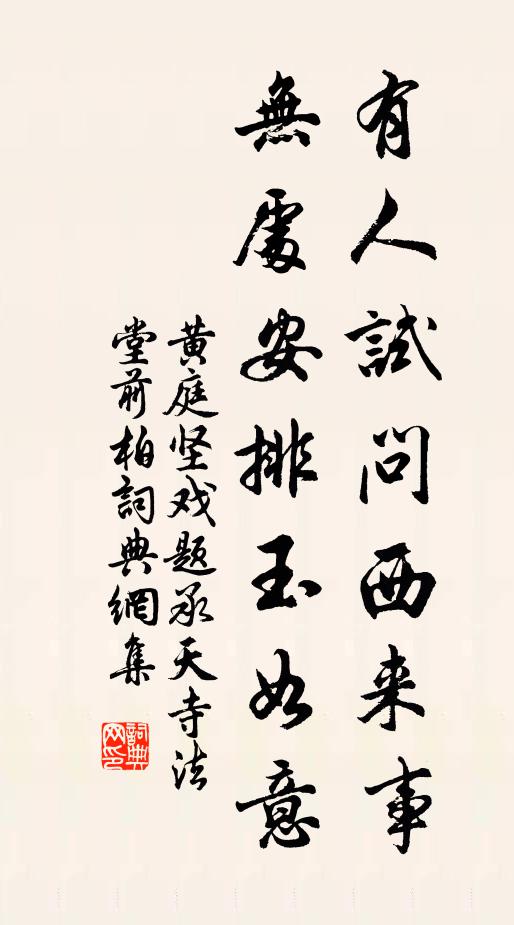 有人試問西来事
無處安排玉如意
黄庭坚戏题承天寺法
堂前柏詞典網集
詞典网印